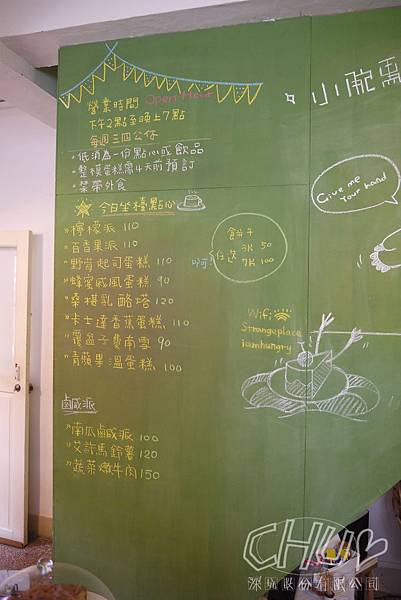 營業時間 Open Hour
下午2點至晚上7點
每週三四公休
·低消為一份點心或飲品
·整模蛋糕需4天前預訂
·禁帶外食
今日坐檯點心
"檸檬派 110
"百香果派 110
"野莓起司蛋糕 110
"蜂蜜戚風蛋糕 90
"桑椹乳酪塔 120
"卡士達香蕉蛋糕 110
"覆盆子費南雪 90
"青蘋果溫蛋糕 100
鹹派
"南瓜鹹派 100
"艾許馬鈴薯 120
"蔬菜燉牛肉 150
餅干
任選 3片 50
7片 100
Wifi
Strangeplace
iamhungry
小腕
Give me
Your hand
CHU
深玩股份有限公司